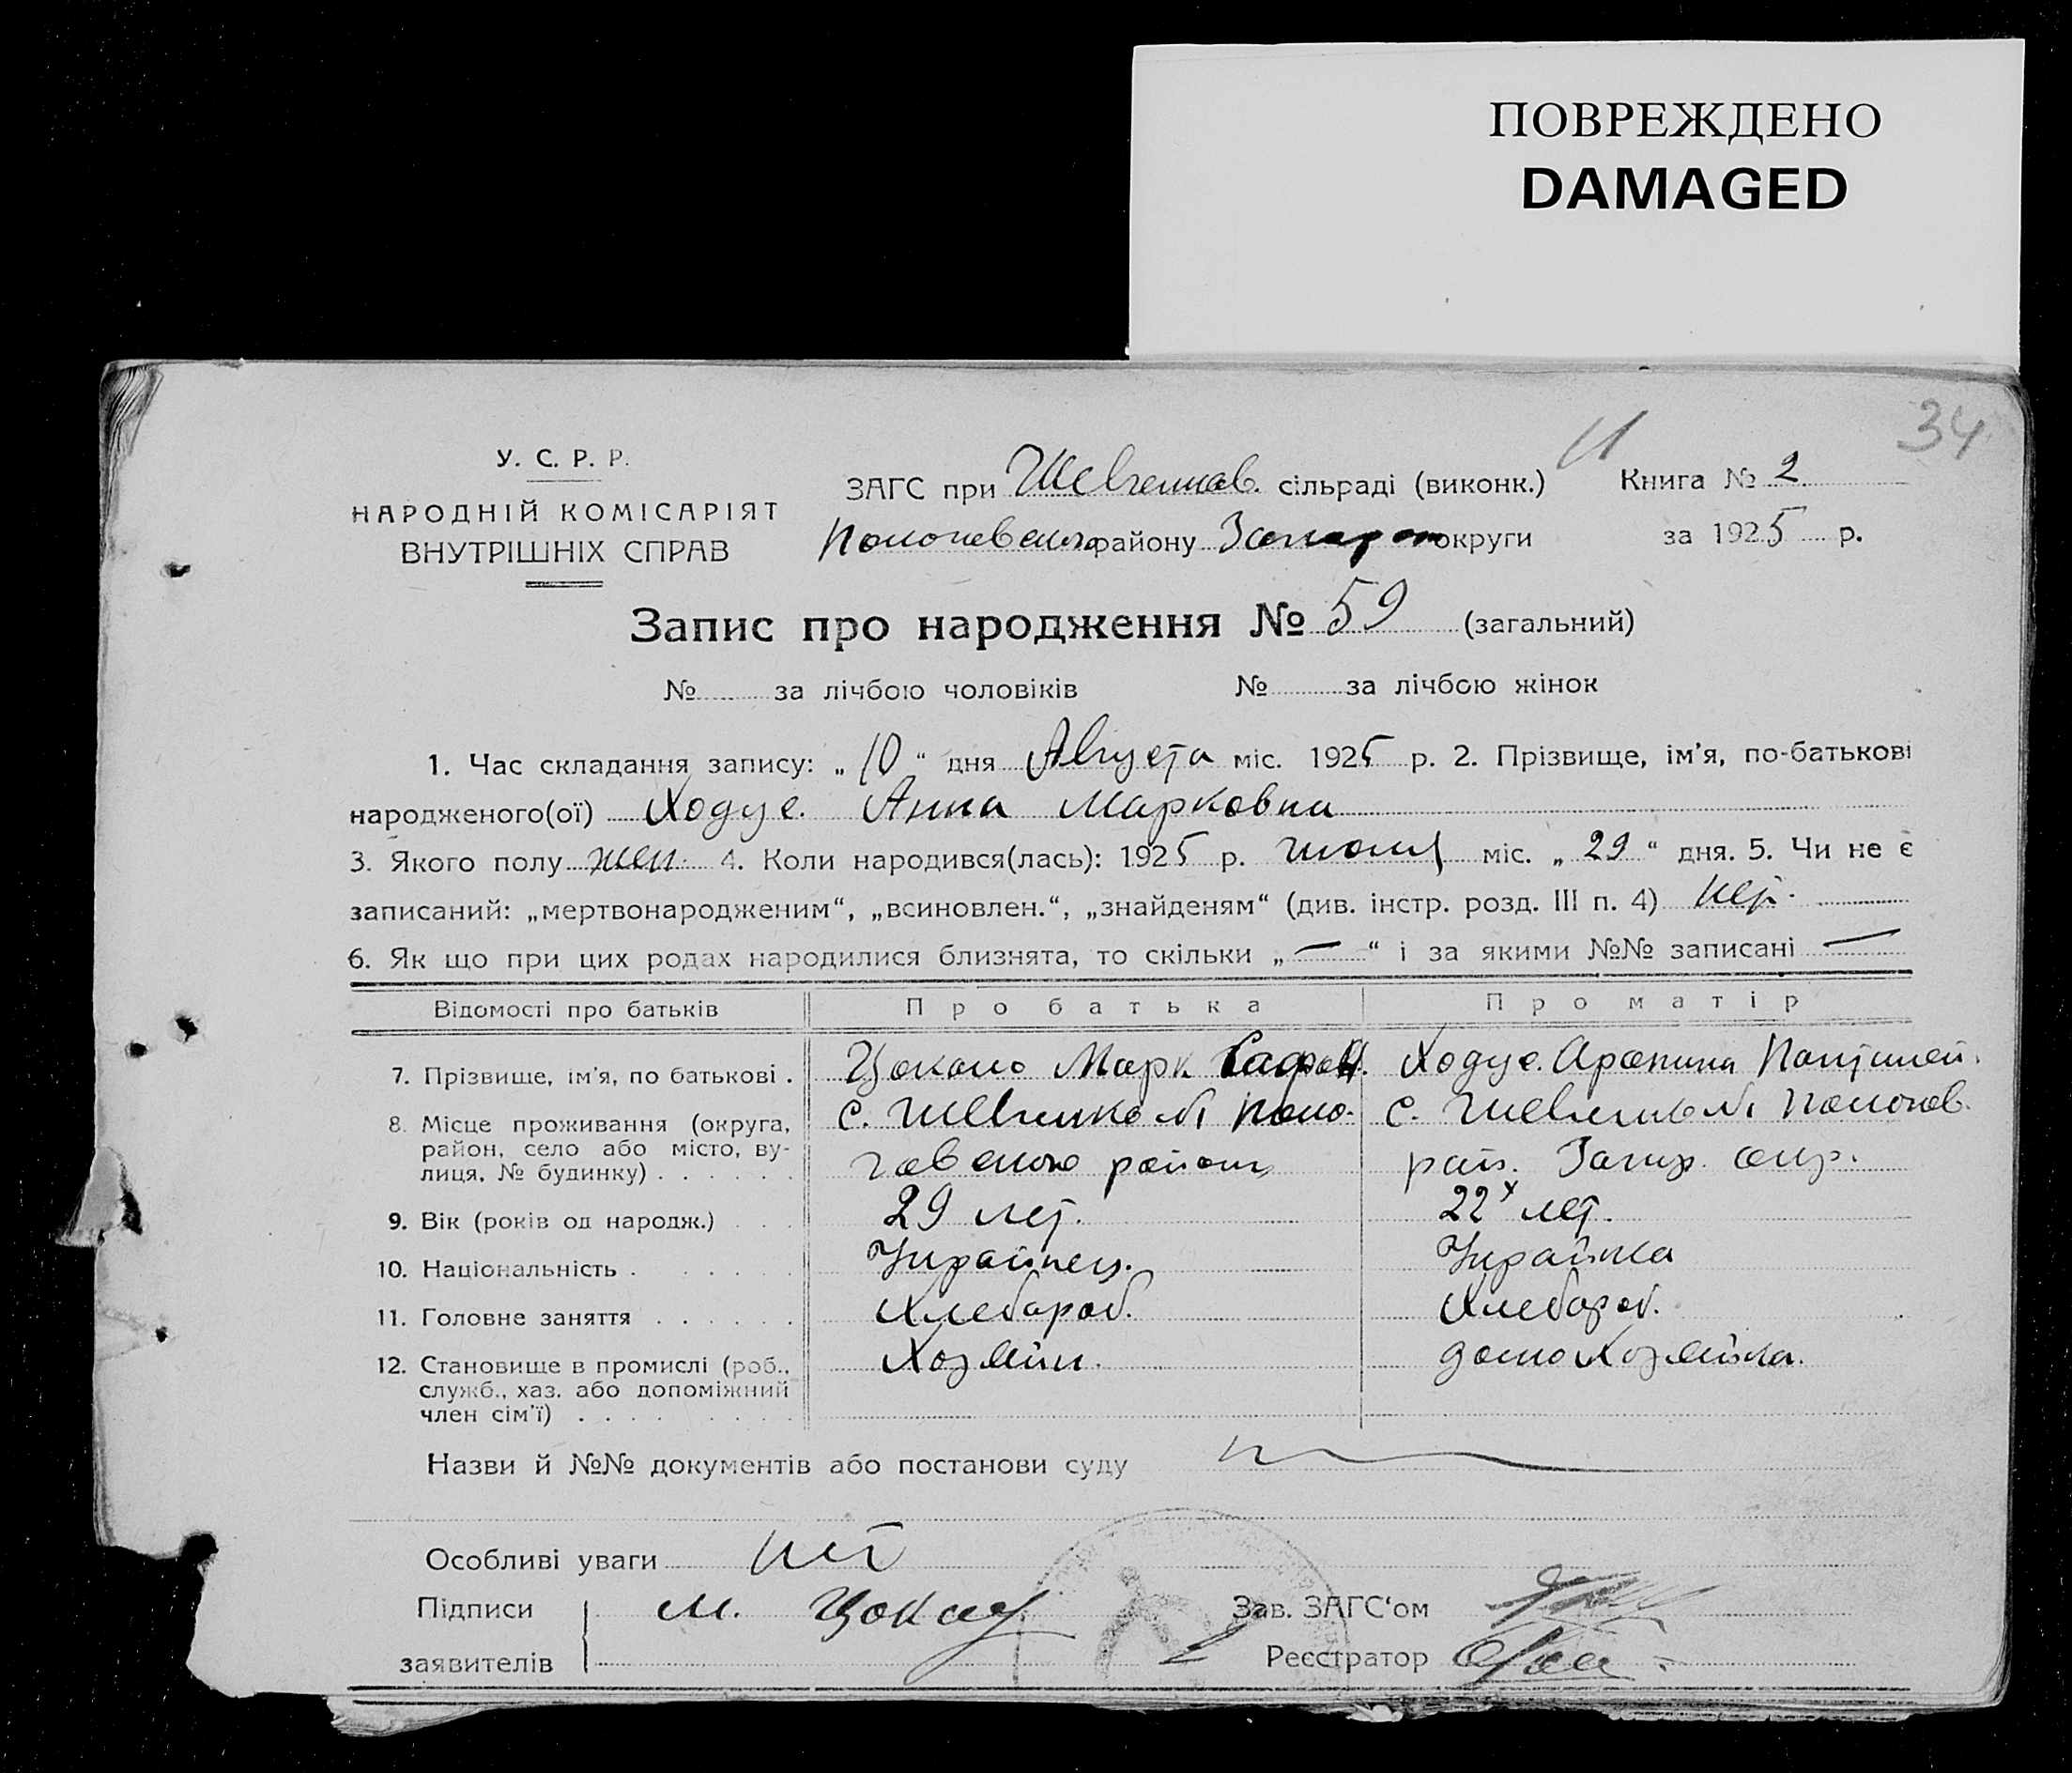 ПОВРЕЖДЕНО
DAMAGED
34
У. С. Р. Р.
НАРОДНІЙ КОМІСАРІЯТ
ВНУТРІШНІХ СПРАВ
ЗАГС при Шевченков. сільраді (виконк.)
Книга № 2
Пологовского району округи
за 1925 р.
Запис про народження № 59 (загальний)
№ за лічбою чоловіків № за лічбою жінок
1. Час складання запису: „10“ дня Августа міс. 1925 р. 2. Прізвище, ім'я, по-батькові
народженого(ої) Ходус Анна Марковна
3. Якого полу жен. 4. Коли народився(лась): 1925 р. июля міс. „29“ дня. 5. Чи не є
записаний: „мертвонародженим“, „всиновлен.“, „знайденям“ (див. інстр. розд. III п. 4) нет.
6. Як що при цих родах народилися близнята, то скільки „—“ і за якими №№ записані —
Відомості про батьків Про батька Про матір
7. Прізвище, ім'я, по батькові . Марк Ходус.
8. Місце проживання (округа, район, село або місто, вулиця, № будинку) . . . . . .
с. Шевченко № 1 Поло-
говского района
с. Шевченко № 1 Пологов.
рай. Запор. окр.
9. Вік (років од народж.) . . . 29 лет. 22х лет.
10. Національність . . . . . . Украйнец. Украйнка
11. Головне заняття . . . . . . Хлебароб. Хлебороб.
12. Становище в промислі (роб., служб., хаз. або допоміжний член сім'ї) . . . . . . . .
Хозяйин. домохозяйка.
Назви й №№ документів або постанови суду
Особливі уваги нет
Підписи
заявителів
М. Цокало
Зав. ЗАГС'ом
Реєстратор